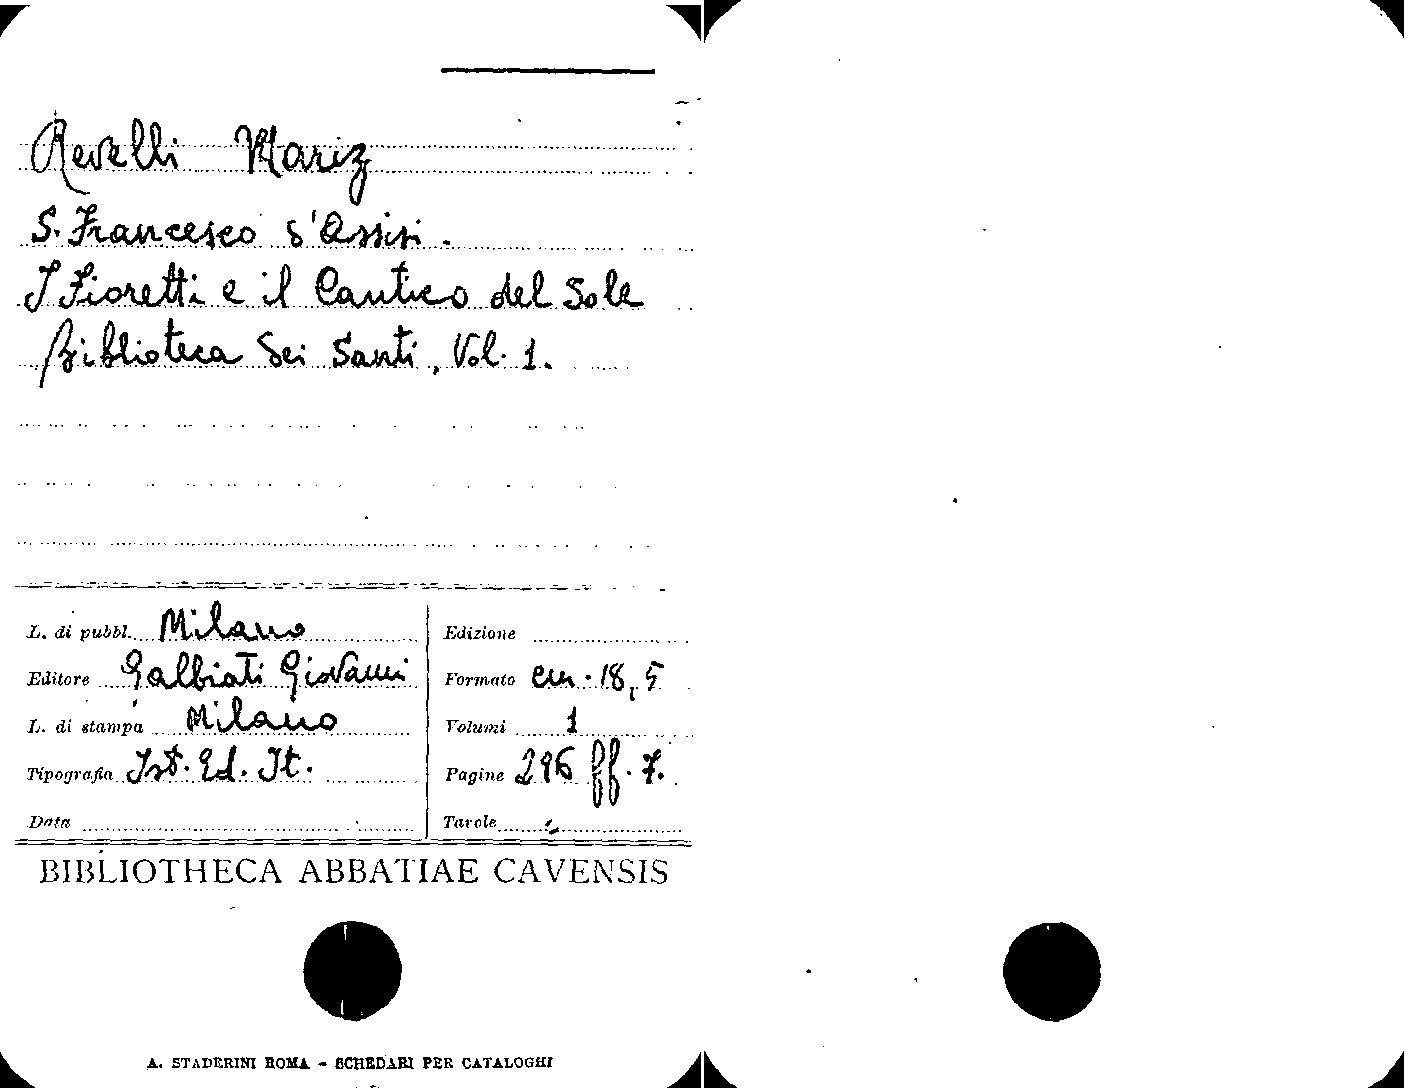 Revelli Mariz
S. Francesco d'Assisi.
I Fioretti e il Cantico del Sole
Biblioteca dei Santi, Vol. 1.
L. di pubbl. Milano
Editore Galbiati Giovanni
L. di stampa Milano
Tipografia Ist. Ed. It.
Data
Edizione
Formato cm. 18,5
Volumi 1
Pagine 296 ff. 7.
Tavole
BIBLIOTHECA ABBATIAE CAVENSIS
A. STADERINI ROMA - SCHEDARI PER CATALOGHI